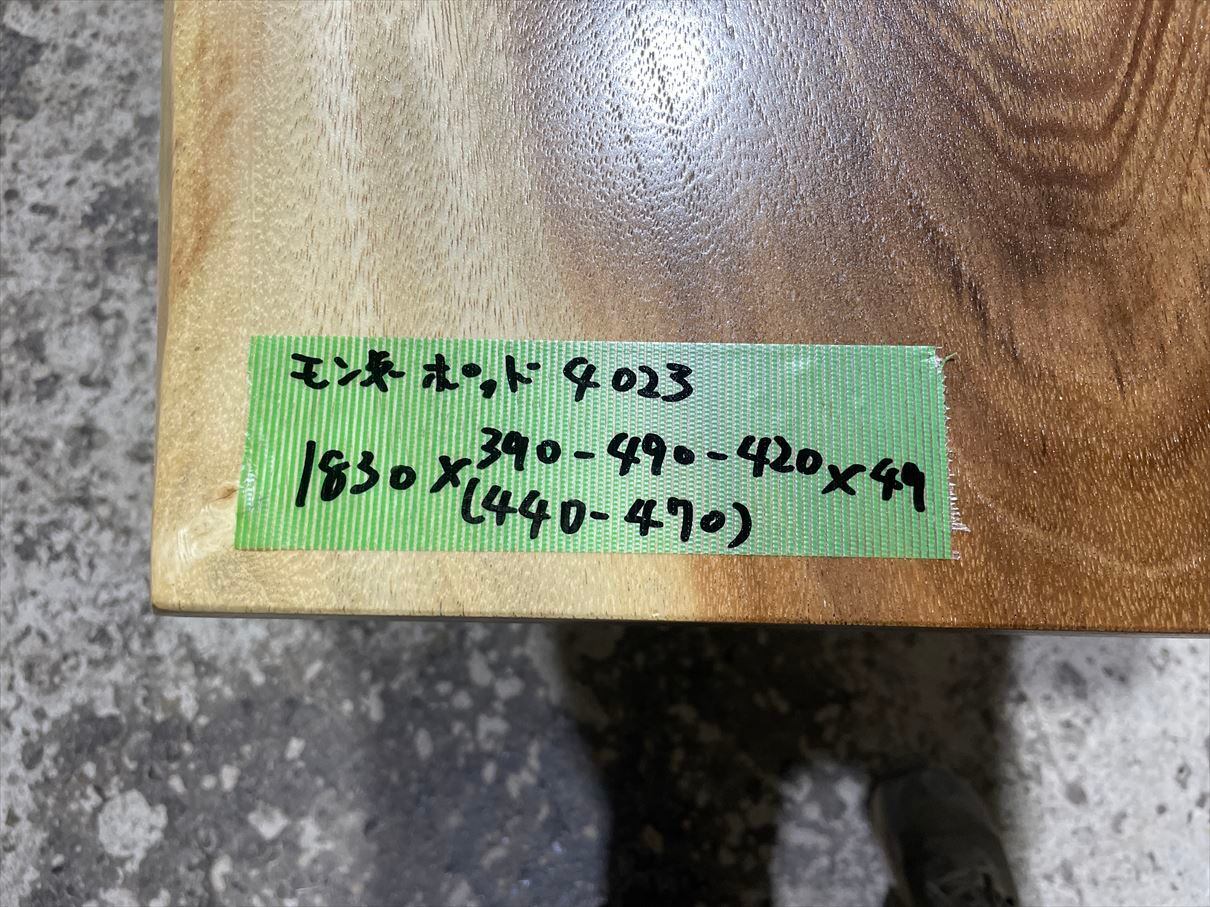 モンキーポッド 4023
1830×390-490-420×49
(440-470)